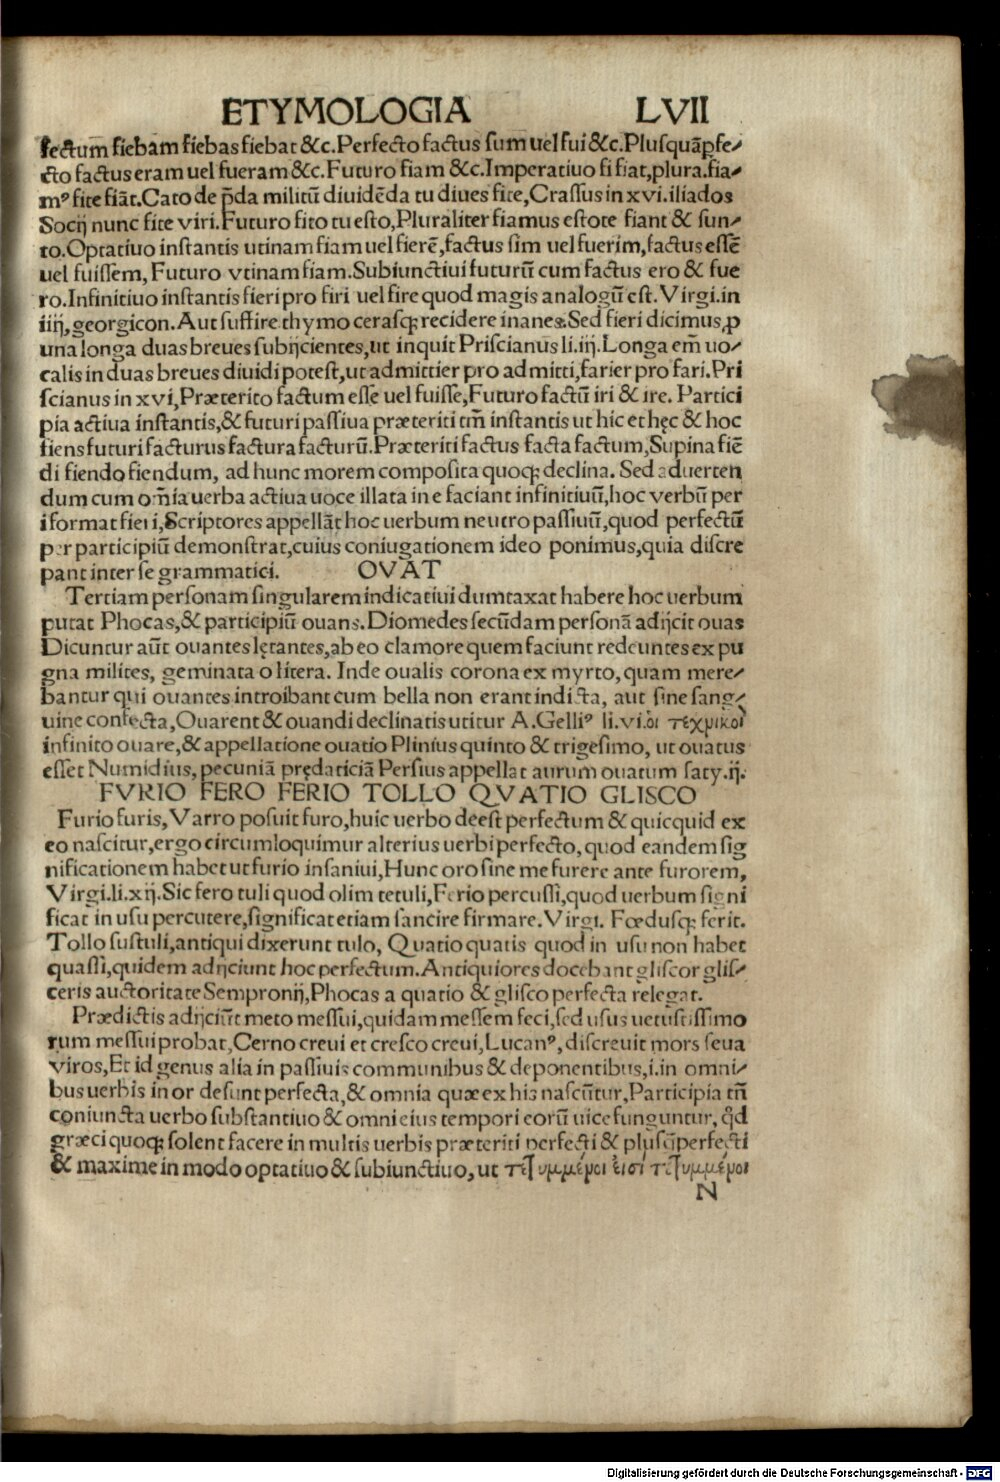 ETYMOLOGIA LVII
fectum fiebam fiebas fiebat &c. Perfecto factus sum uel fui &c. Plusquāp̱fe⸗
cto factus eram uel fueram &c. Futuro fiam &c. Imperatiuo fi fiat, plura. fia⸗
mꝰ fite fiāt. Cato de p̄da militū diuidēda tu diues fite, Crassus in xvi. iliados
Socij nunc fite viri. Futuro fito tu esto, Pluraliter fiamus estote fiant & sun⸗
to. Optatiuo instantis utinam fiam uel fierē, factus sim uel fuerim, factus essē
uel fuissem, Futuro vtinam fiam. Subiunctiui futurū cum factus ero & fue
ro. Infinitiuo instantis fieri pro firi uel fire quod magis analogū est. Virgi. in
iiij, georgicon. Aut suffire thymo cerasqꝫ recidere inanes. Sed fieri dicimus, ꝓ
una longa duas breues subijcientes, ut inquit Priscianus li. iij. Longa em̄ uo⸗
calis in duas breues diuidi potest, ut admittier pro admitti, farier pro fari. Pri
scianus in xvi, Præterito factum esse uel fuisse, Futuro factū iri & ire. Partici
pia actiua instantis, & futuri passiua præteriti tm̄ instantis ut hic et hęc & hoc
fiens futuri facturus factura facturū. Præteriti factus facta factum, Supina fiē
di fiendo fiendum, ad hunc morem composita quoqꝫ declina. Sed aduerten
dum cum om̄ia uerba actiua uoce illata in e faciant infinitiuū, hoc verbū per
i format fieri, Scriptores appellāt hoc uerbum neutro passiuū, quod perfectū
per participiū demonstrat, cuius coniugationem ideo ponimus, quia discre
pant inter se grammatici. OVAT
Tertiam personam singularem indicatiui dumtaxat habere hoc uerbum
putat Phocas, & participiū ouans. Diomedes secūdam personā adijcit ouas
Dicuntur aūt ouantes lętantes, ab eo clamore quem faciunt redeuntes ex pu
gna milites, geminata o litera. Inde oualis corona ex myrto, quam mere⸗
bantur qui ouantes introibant cum bella non erant indicta, aut sine sang⸗
uine confecta, Ouarent & ouandi declinatis utitur A. Gelliꝰ li. vi. οἱ τεχνικοὶ
infinito ouare, & appellatione ouatio Plinius quinto & trigesimo, ut ouatus
esset Numidius, pecuniā prędaticiā Persius appellat aurum ouatum saty. ij.
FVRIO FERO FERIO TOLLO QVATIO GLISCO
Furio furis, Varro posuit furo, huic uerbo deest perfectum & quicquid ex
eo nascitur, ergo circumloquimur alterius uerbi perfecto, quod eandem sig
nificationem habet ut furio insaniui, Hunc oro sine me furere ante furorem,
Virgi. li. xij. Sic fero tuli quod olim tetuli, Ferio percussi, quod uerbum signi
ficat in usu percutere, significat etiam sancire firmare. Virgi. Fœdusqꝫ ferit.
Tollo sustuli, antiqui dixerunt tulo, Quatio quatis quod in usu non habet
quassi, quidem adijciunt hoc perfectum. Antiquiores docebant gliscor glis⸗
ceris auctoritate Sempronij, Phocas a quatio & glisco perfecta relegat.
Prædictis adijciūt meto messui, quidam messem feci, sed usus uetustissimo
rum messui probat, Cerno creui et cresco creui, Lucanꝰ, discreuit mors seua
viros, Et id genus alia in passiuis communibus & deponentibus, i. in omni⸗
bus uerbis in or desunt perfecta, & omnia quæ ex his nascūtur, Participia tn̄
coniuncta uerbo substantiuo & omni eius tempori eorū uice funguntur, qd̄
græci quoqꝫ solent facere in multis uerbis præteriti perfecti & plusq̄perfecti
& maxime in modo optatiuo & subiunctiuo, ut τετυμμένοι εἰσὶ τετυμμένοι
N
Digitalisierung gefördert durch die Deutsche Forschungsgemeinschaft - DFG